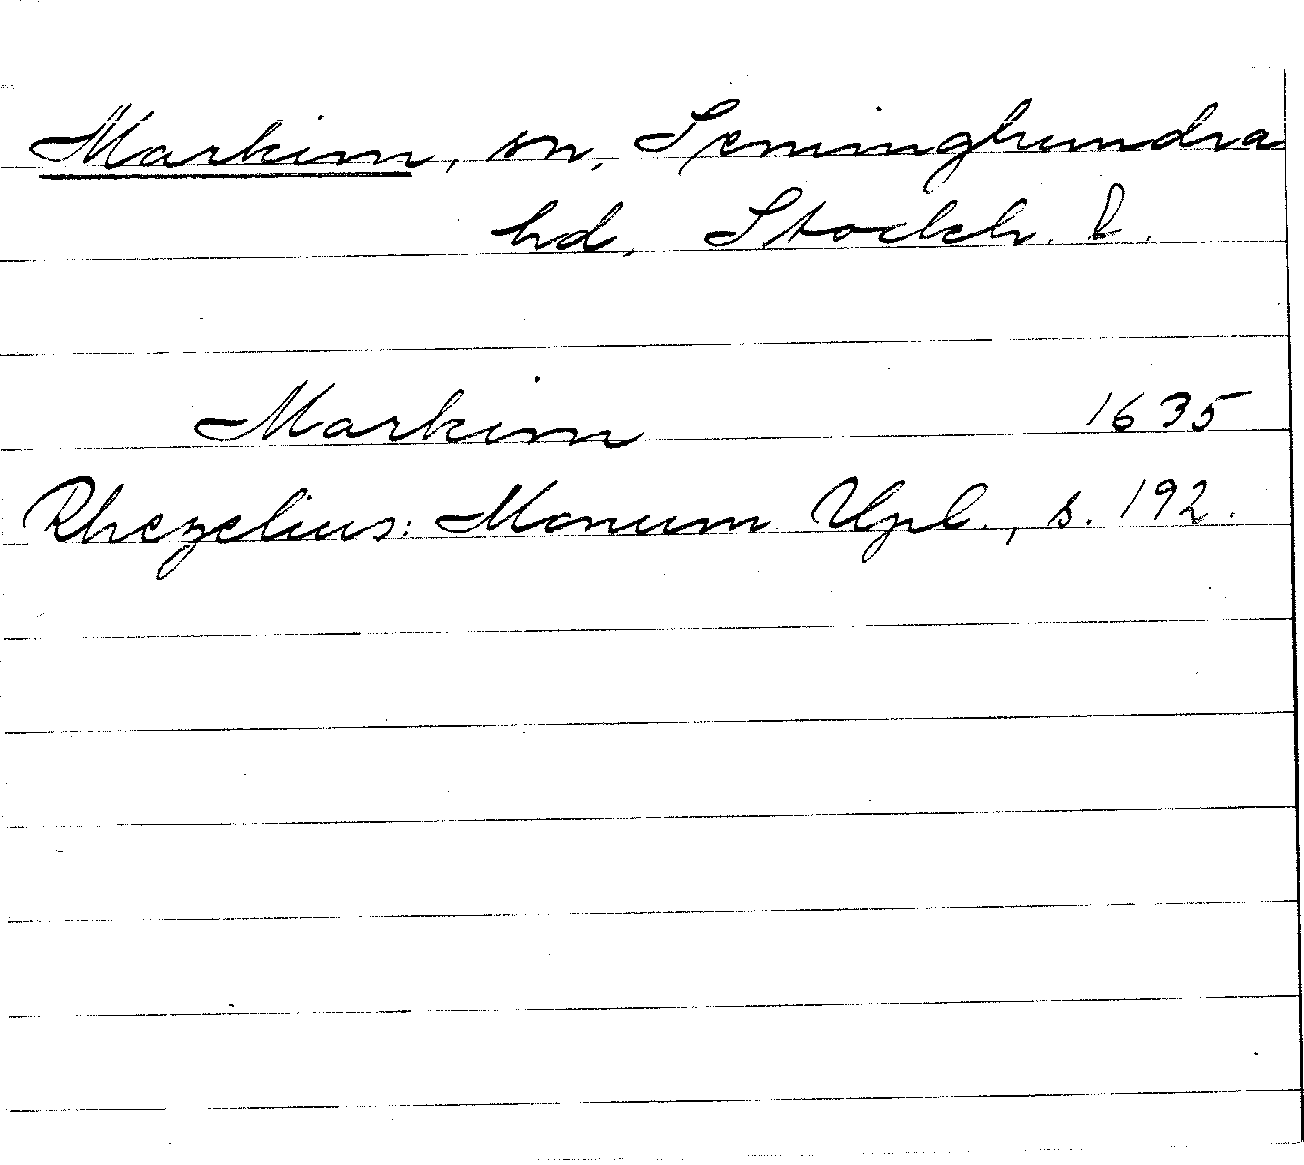 Markim, sn, Seminghundra
hd, Stockh. l.
Markim 1635
Rhezelius: Monum Upl., s. 192.